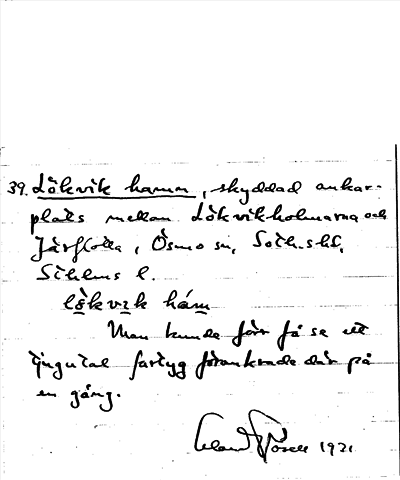 39. Lökvik hamn, skyddad ankar-
plats mellan Lökvikholmarna och
Järflotta, Ösmo sn, Soth. shf,
Sthlms l.
lökvik hám
Man kunde förr få se ett
tjugutal fartyg förankrade där på
en gång.
1921